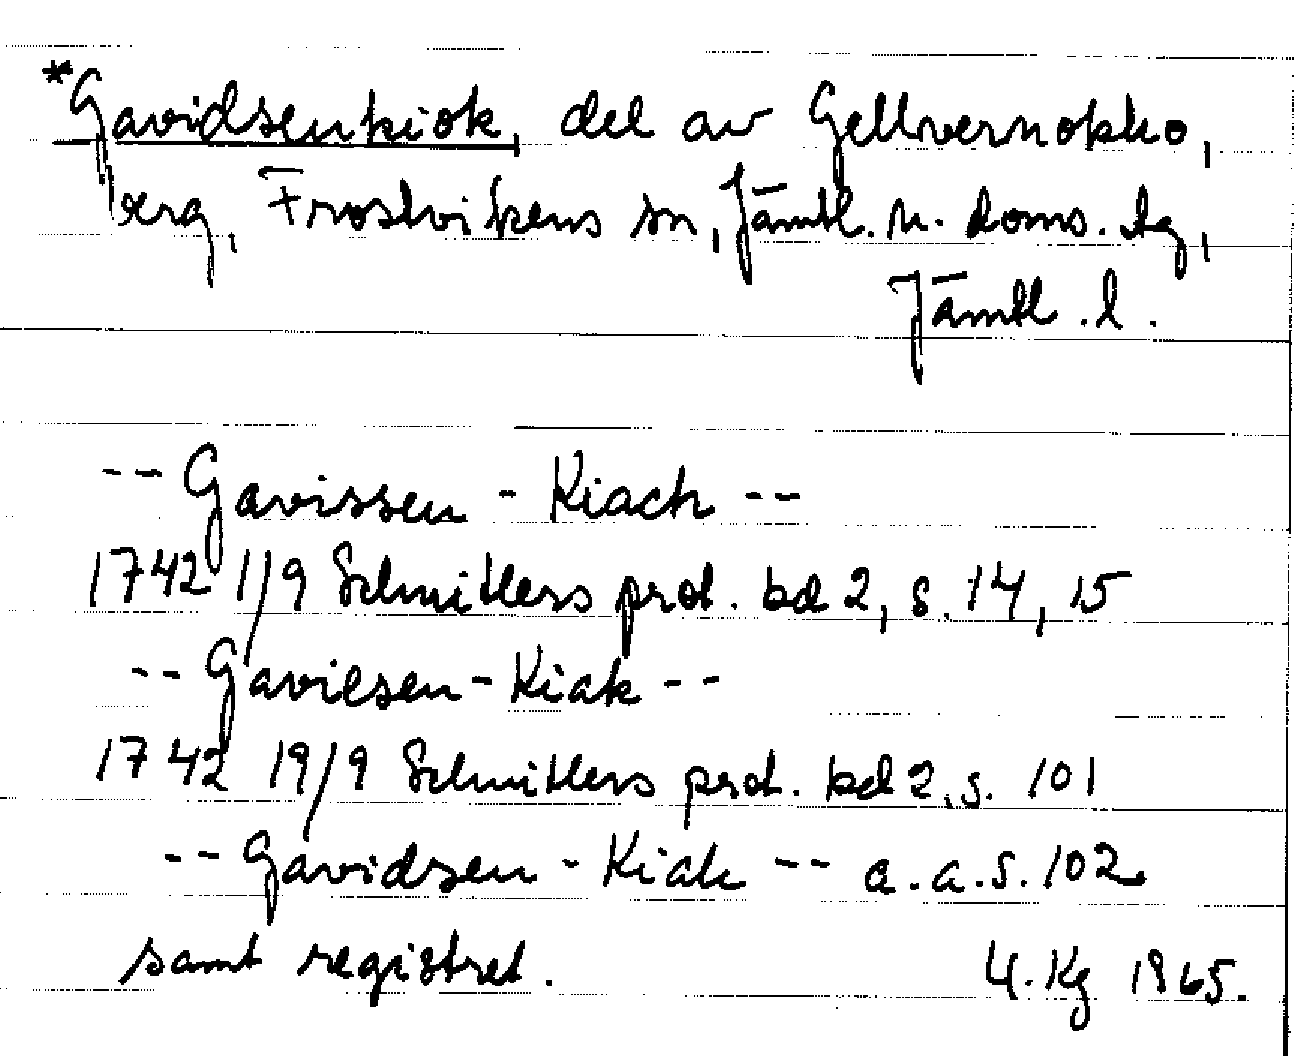 *Gavidsenkiok, del av Gellvernokko,
berg, Frostvikens sn, Jämtl. n. doms. tg,
Jämtl. l.
-- Gavissen - Kiach --
1742 1/9 Schnitlers prot. bd 2, s. 14, 15
-- Gaviesen - Kiak --
1742 19/9 Schnitlers prot. bd 2, s. 101
-- Gavidsen - Kiak -- a.a.s. 102
samt registret. U. Kg 1965.